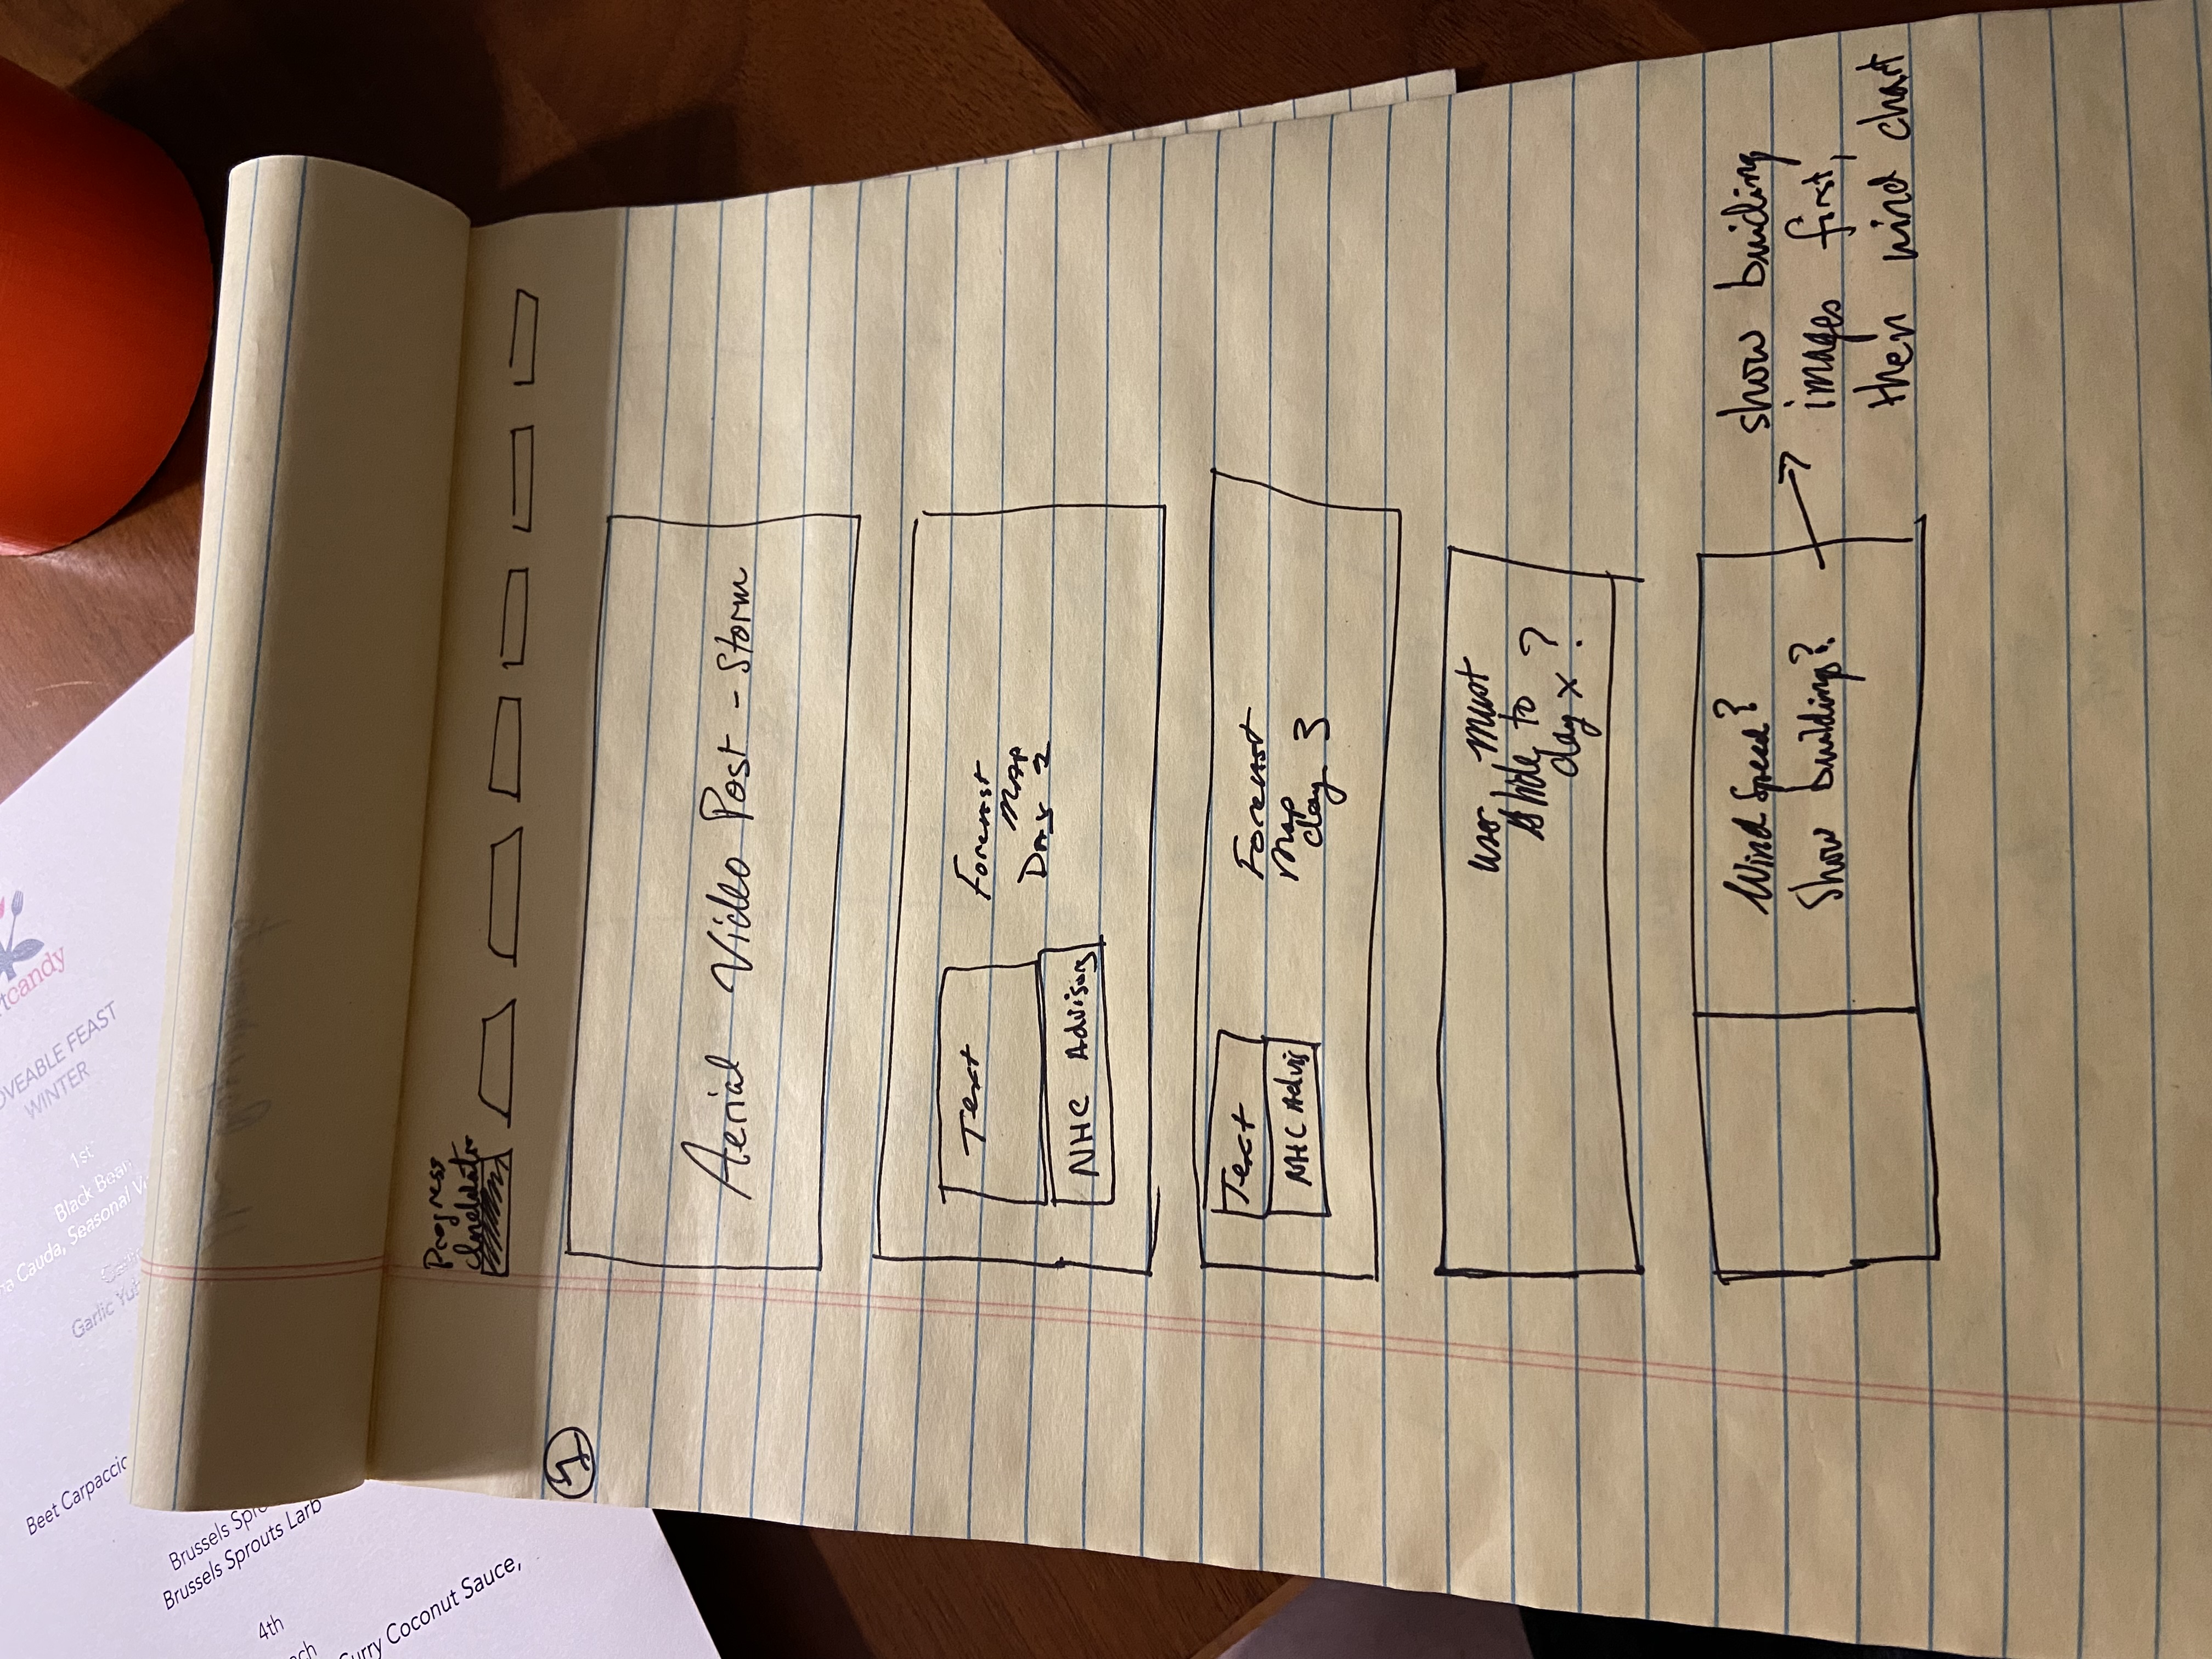 tcandy
OVEABLE FEAST
WINTER
1st
Black Bean
na Cauda, Seasonal V
Garlic Yu
Beet Carpaccio
Brussels Spr
Brussels Sprouts Larb
4th
Curry Coconut Sauce,
Progress
Aerial Video Post - Storm
Text
Forecast
Map
Day 2
NHC Advisory
Text
Forecast
Map
day 3
NHC Advis
user must
slide to
day x ?
Wind Speed?
Show buildings?
show building
images first,
then wind chart